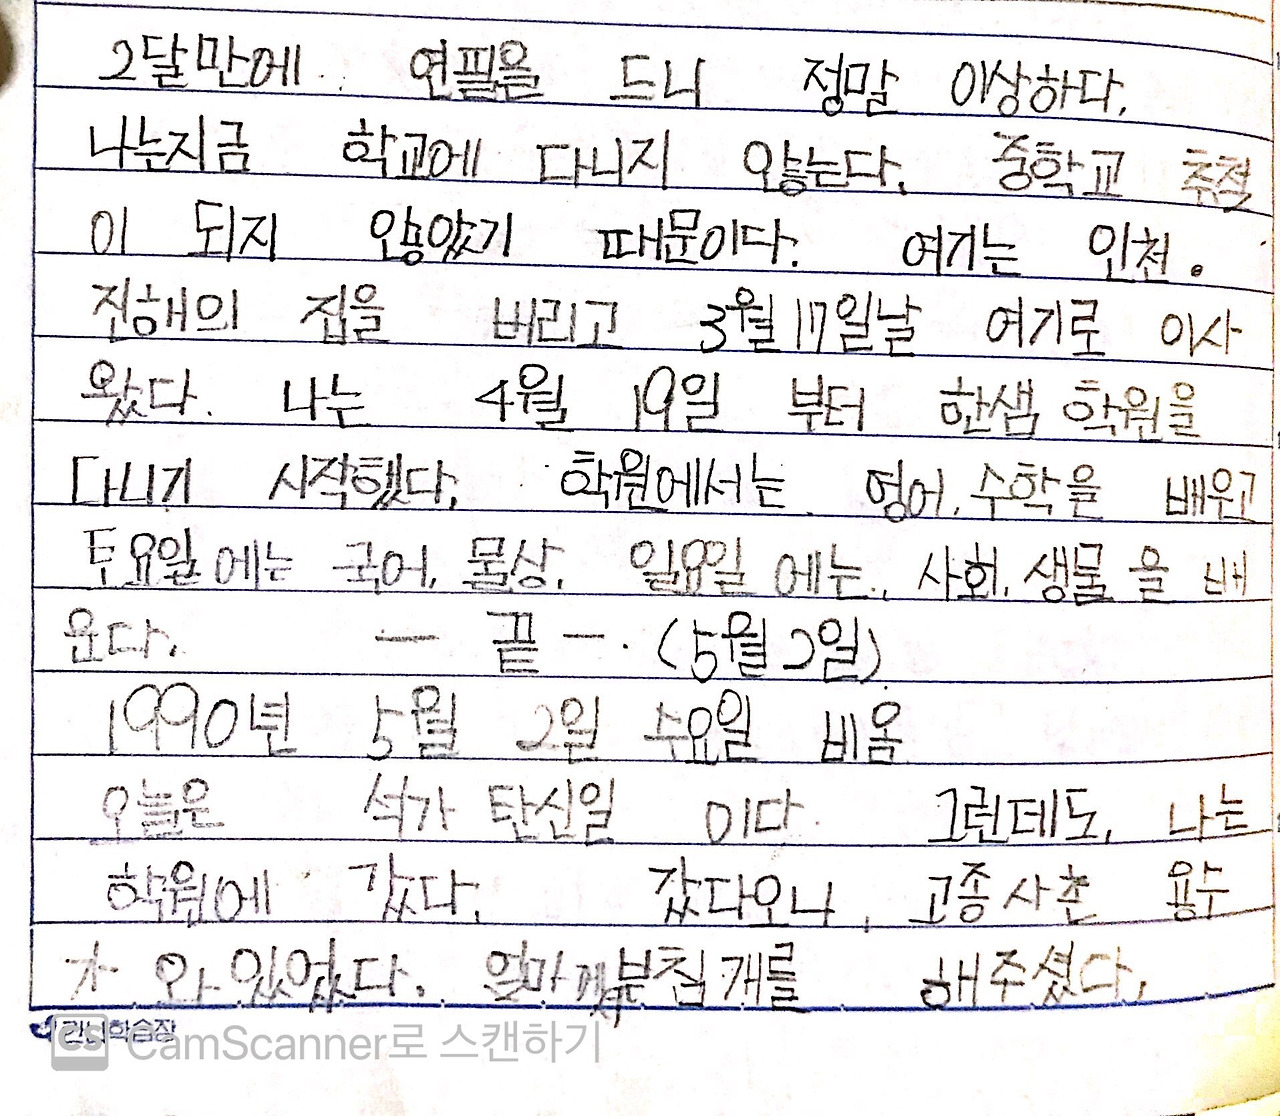 2달만에 연필을 드니 정말 이상하다.
나는지금 학교에 다니지 않는다. 중학교 추첨
이 되지 않았기 때문이다. 여기는 인천.
진해의 집을 버리고 3월 17일날 여기로 이사
왔다. 나는 4월 19일 부터 한샘 학원을
다니기 시작했다. 학원에서는 영어, 수학을 배우고
토요일에는 국어, 물상, 일요일에는, 사회, 생물을 배
운다. — 끝 — (5월 2일)
1990년 5월 2일 수요일 비옴
오늘은 석가 탄신일 이다. 그런데도, 나는
학원에 갔다. 갔다오니, 고종사촌 용수
가 와 있었다. 엄마께서 부침개를 해주셨다.
CS CamScanner로 스캔하기